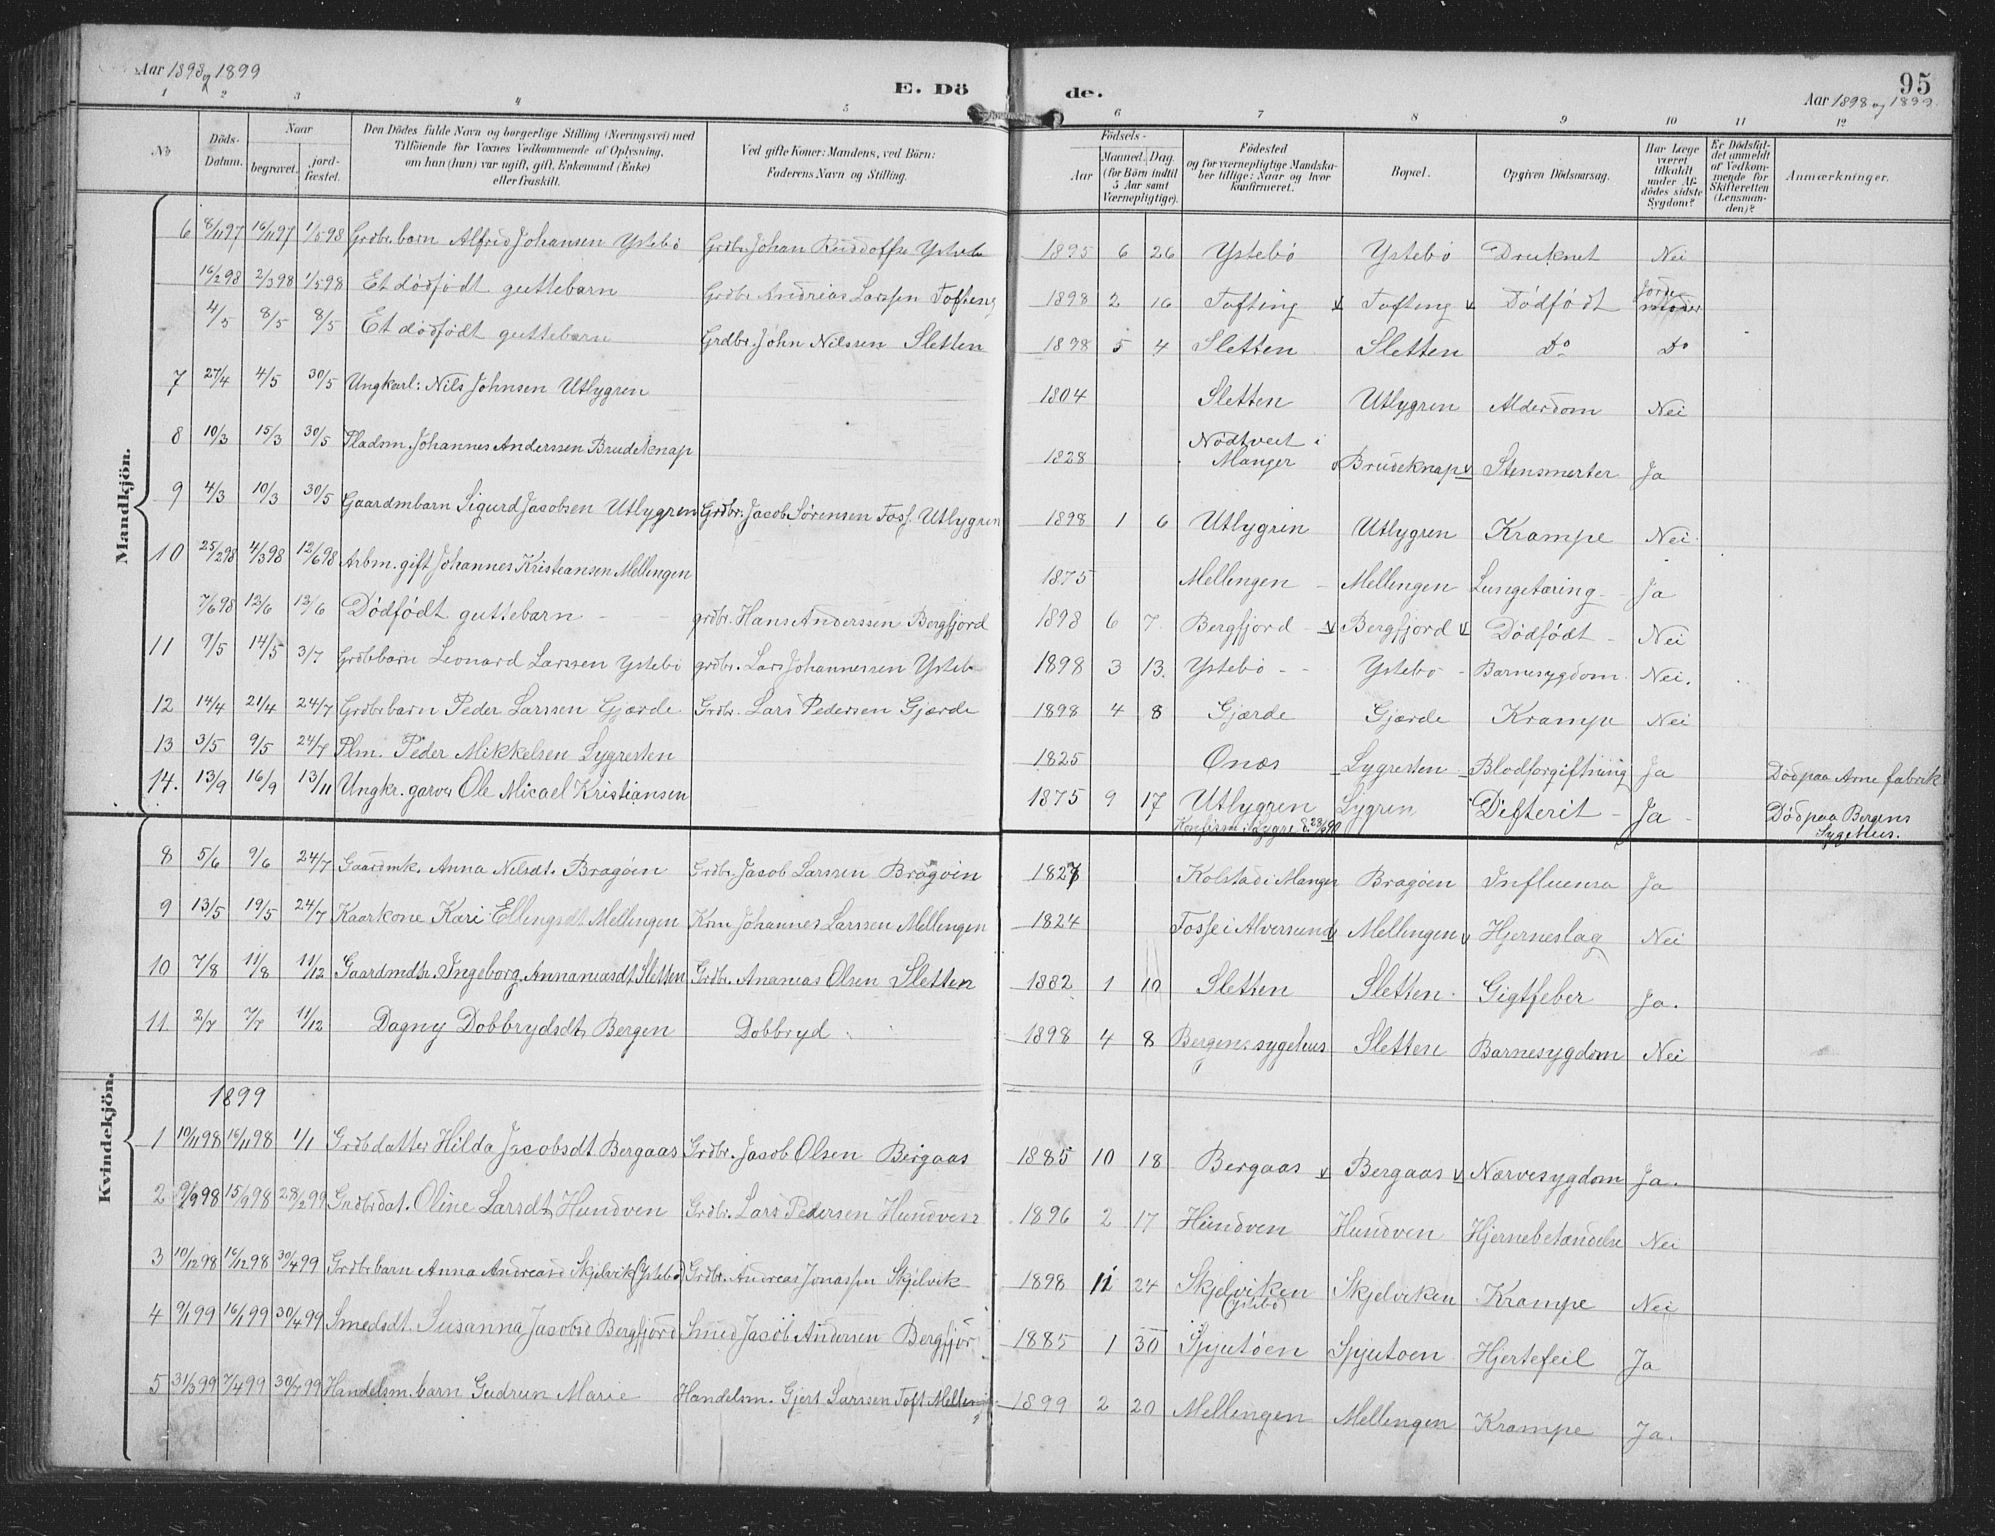 Aar 1898 og 1899
E. Dö de.
95
Aar 1898 og 1899
1 2 3 4 5 6 7 8 9 10 11 12
No
Döds-Datum.
Naar begravet. jordfæstet.
Den Dödes fulde Navn og borgerlige Stilling (Næringsvei) med Tilföiende for Voxnes Vedkommende af Oplysning, om han (hun) var ugift, gift, Enkemand (Enke) eller fraskilt.
Ved gifte Koner: Mandens, ved Börn: Faderens Navn og Stilling.
Födsels- Aar Maaned. Dag. (for Börn indtil 5 Aar samt Værnepligtige).
Födested og for værnepligtige Mandskaber tillige: Naar og hvor konfirmeret.
Bopæl.
Opgiven Dödsaarsag.
Har Læge været tilkaldt under Afdödes sidste Sygdom?
Er Dödsfaldet anmeldt af Vedkommende for Skifteretten (Lensmanden)?
Anmærkninger.
Mandkjön.
6 8/11 97 16/11 97 1/5 98 Grdbr. barn Alfred Johansen Ystebö Grdbr. Johan Ystebö 1895 6 26 Ystebö Ystebö Druknet Nei
16/2 98 2/3 98 1/5 98 Et dödfödt guttebarn Grdbr. Andreas Larssen Tofting 1898 2 16 Tofting Tofting Dödfödt Jordmoder
4/5 8/5 8/5 Et dödfödt guttebarn Grdbr. John Nilssen Sletten 1898 5 4 Sletten Sletten Do Do
7 27/4 4/5 30/5 Ungkarl: Nils Johnsen Utlygren 1804 Sletten Utlygren Alderdom Nei
8 10/3 15/3 30/5 Pladsm. Johannes Anderssen Brudeknap 1828 Nodtveit i Manger Brudeknap Stensmerter Ja
9 4/3 10/3 30/5 Gaardmbarn Sigurd Jacobsen Utlygren Grdbr. Jacob Sörensen Foss. Utlygren 1898 1 6 Utlygren Utlygren Krampe Nei
10 25/2 98 4/3 98 12/6 98 Arbm. gift Johannes Kristiansen Mellingen 1875 Mellingen Mellingen Lungetæring Ja
7/6 98 12/6 12/6 Dödfödt guttebarn grdbr. Hans Anderssen Bergfjord 1898 6 7 Bergfjord Bergfjord Dödfödt Nei
11 9/5 14/5 3/7 Grdbrbarn Leonard Larssen Ystebö grdbr. Lars Johannessen Ystebö 1898 3 13. Ystebö Ystebö Barnesygdom Nei.
12 14/4 21/4 24/7 Grdbrbarn Peder Larssen Gjærde Grdbr. Lars Pedersen Gjærde 1898 4 8 Gjærde Gjærde Krampe Nei
13 3/5 9/5 24/7 Plm. Peder Mikkelsen Lygresten 1825 Onæs Lygresten Blodforgiftning Ja Död paa Arne fabrik
14. 13/9 16/9 13/11 Ungkr. garver Ole Micael Kristiansen 1875 9 17 Utlygren Lygren Difterit Ja Död paa Bergens Sygehus.
Kvindekjön.
8 5/6 9/6 24/7 Gaardmk. Anna Nilsdt. Bragöen Grdbr. Jacob Larssen Bragöen 1827 Kolstad i Manger Bragöen Influensa Ja
9 13/5 19/5 24/7 Kaarkone Kari Ellingsdt. Mellingen Krm Johannes Larssen Mellingen 1824 Fosse i Alversund Mellingen Hjerneslag Nei
10 7/8 11/8 11/12 Gaardmdtr. Ingeborg Annaniasdt. Sletten Grdbr. Ananias Olsen Sletten 1882 1 10 Sletten Sletten Gigtfeber Ja.
11. 2/7 7/7 11/12 Dagny Dobbrydsdt. Bergen Dobbryd 1898 4 8 Bergens sygehus Sletten Barnesygdom Nei
1899
1 10/11 98 16/11 98 1/1 Grdbdatter Hilda Jacobsdt Bergaas Grdbr. Jacob Olsen Bergaas 1885 10 18 Bergaas Bergaas Nærvesygdom Ja.
2 9/9 98 15/9 98 28/2 99 Grdbrdat. Oline Larsdt. Hundven Grdbr. Lars Pedersen Hundven 1896 2 17 Hundven Hundven Hjernebetændelse Nei
3 10/12 98 16/12 98 30/4 99 Grdbrbarn Anna Andreasd Skjelvik (Ystebö) Grdbr. Andreas Jonassen Skjelvik 1898 11 24 Skjelviken (Ystebö) Skjelviken Krampe Nei
4 9/1 99 16/1 99 30/4 99 Smedsdt. Susanna Jacobsd Bergfjord Smed Jacob Andersen Bergfjor 1885 1 30 Spjutöen Spjutoen Hjertefeil Ja
5 31/3 99 7/4 99 30/7 99 Handelsm. barn Gudrun Marie Handelsm. Gjert Larssen Toft Mellingen 1899 2 20 Mellingen Mellingen Krampe Ja.